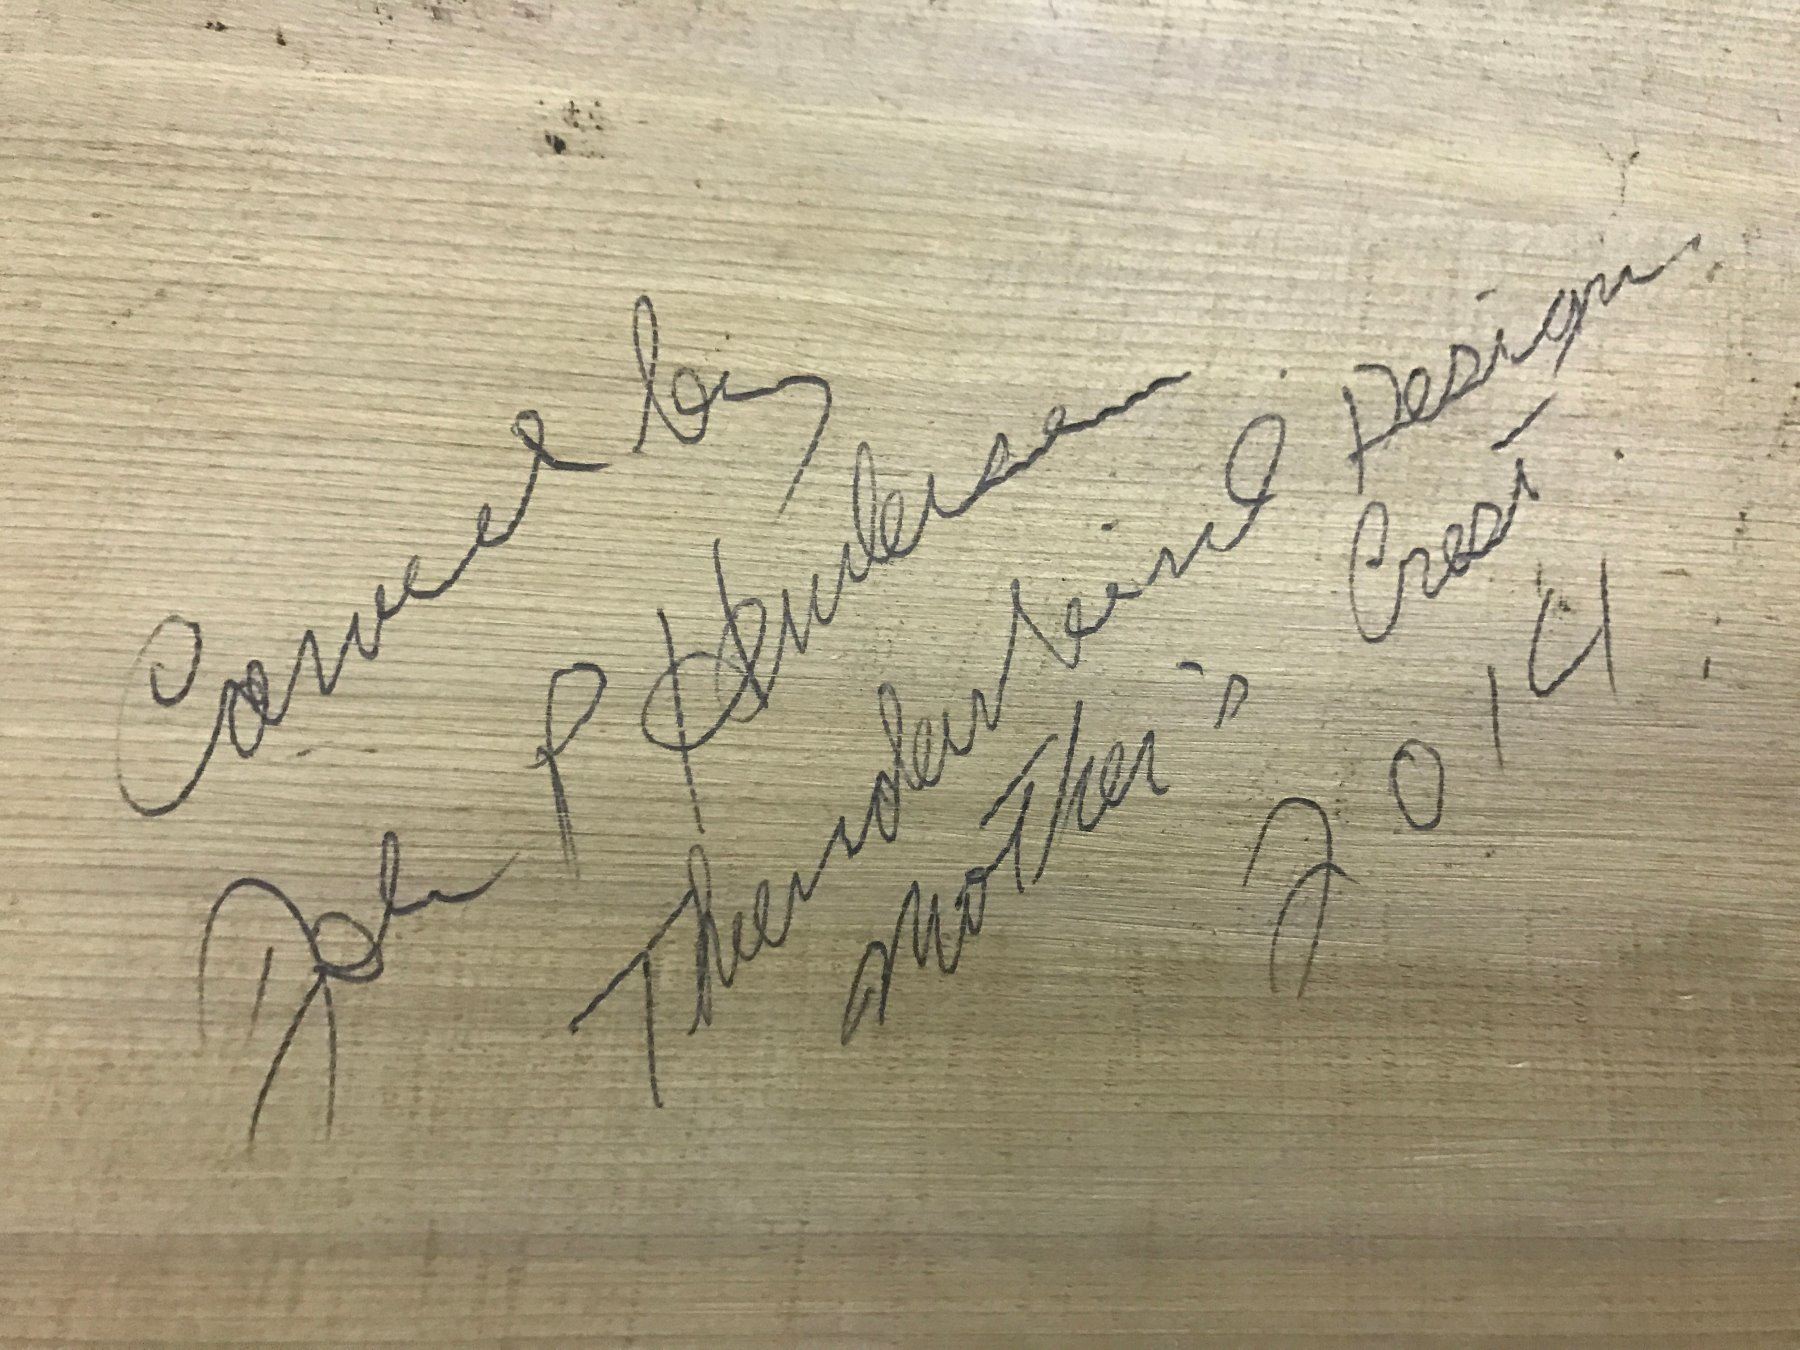 Carved by
John P Henderson
Thunderbird Design
Mother's Crest
2014